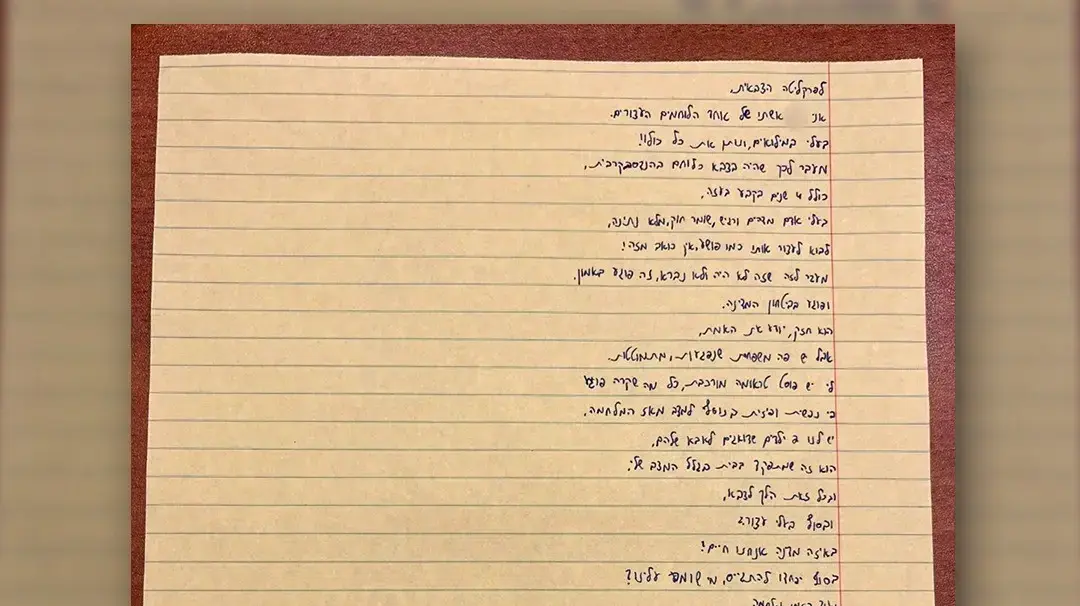 לפרקליטה הצבאית,
אני אשתו של אחד הלוחמים העצורים.
בעלי במילואים, ונותן את כל כולו!
מעבר לכך שהיה בצבא כלוחם בהנדסה קרבית,
כולל 4 שנים בקבע בעזה,
בעלי אדם מדהים ורגיש, שומר חוק, מלא נתינה,
לבוא לעצור אותו כמו פושע, אין כואב מזה!
מעבר לזה שזה לא היה ולא נברא, זה פוגע באמון,
ופוגע בביטחון המדינה.
הוא חזק, יודע את האמת,
אבל יש פה משפחות שנפגעות, מתמוטטות.
לי יש פוסט טראומה מורכבת, כל מה שקרה פוגע
בי נפשית ופיזית בנוסף למצב מאז המלחמה,
יש לנו ילדים שדואגים לאבא שלהם,
הוא זה שמתפקד בבית בגלל המצב שלי,
ובכל זאת הלך לצבא,
ובסוף בעלי עצור?
באיזה מדינה אנחנו חיים?
בסוף יפחדו להתגייס, מי שומר עלינו?